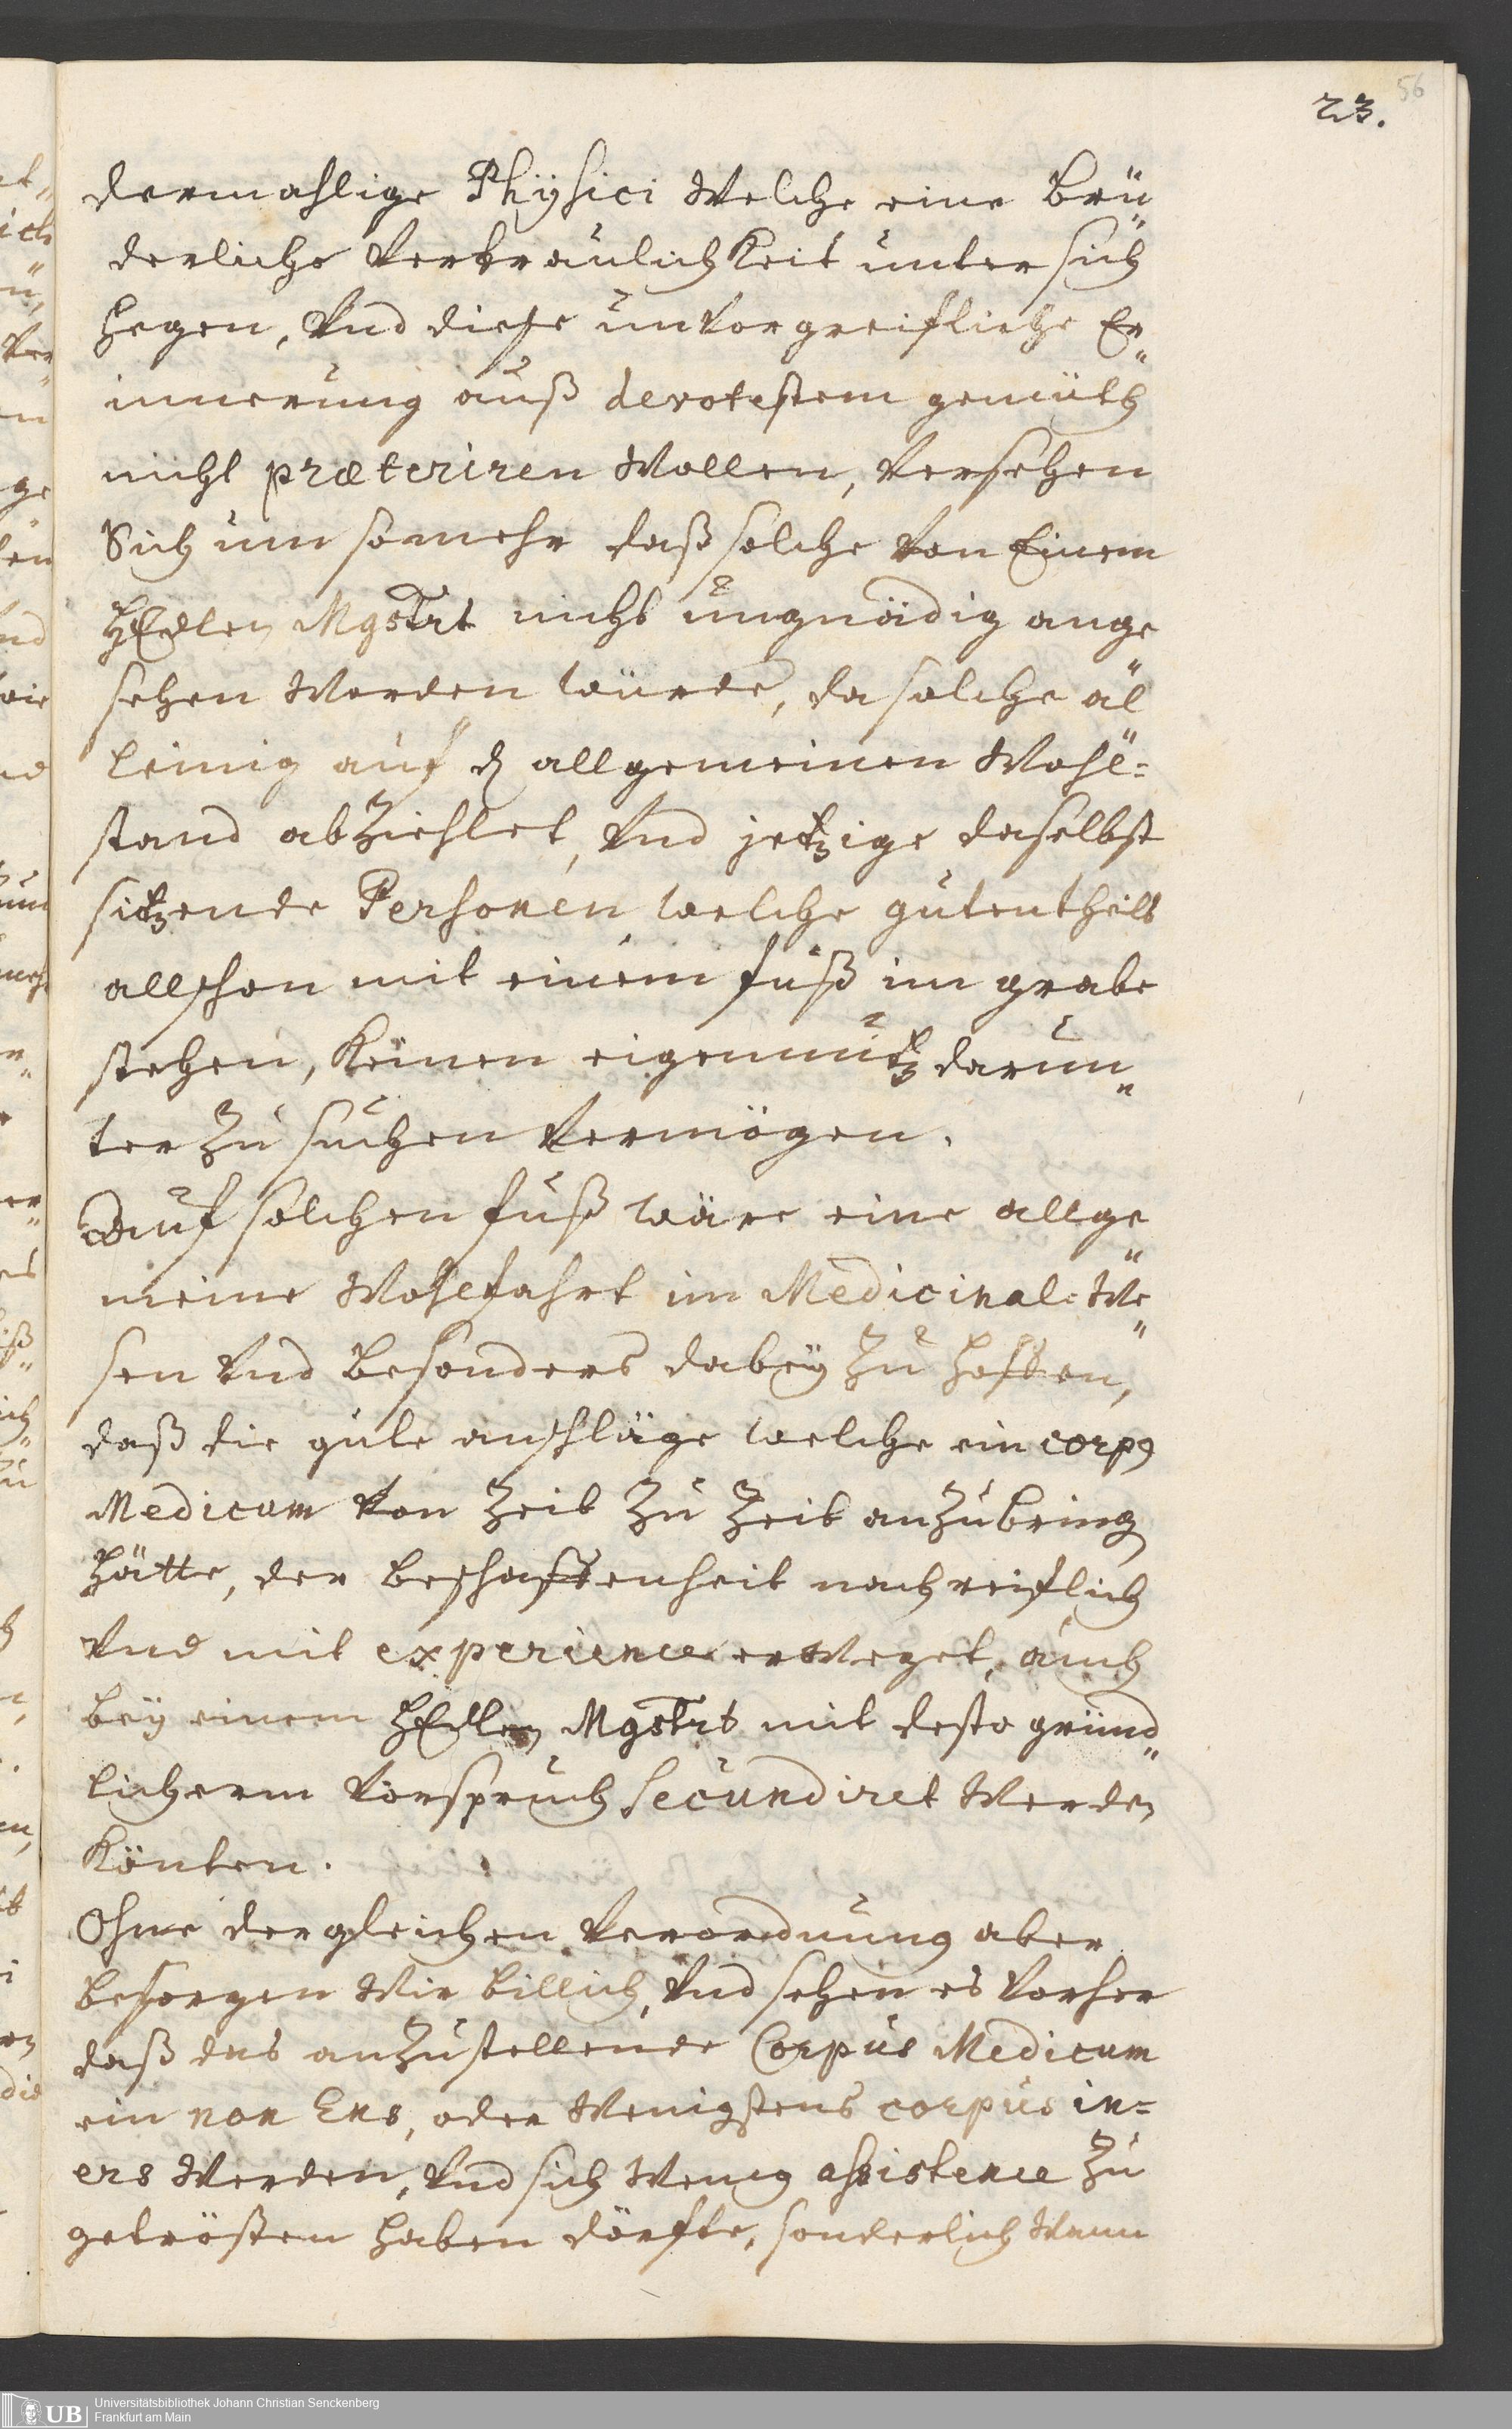 56
23.
dermahlige Physici Welche eine Brü„
derliche Vertraulichkeit unter sich
hegen, Vnd diese unvorgreifliche Er„
innerung auß devotestem gemüth
nicht præteriren Wollen, Versehen
Sich um somehr daß solche Von Einem
HEdlen Mgstrt nicht ungnädig ange„
sehen Werden würde, da solche al„
leinig auf d allgemeinen Wohl=
stand abziehlet, Vnd jetzige daselbst
sitzende Personen welche gutentheils
allschon mit einem fuß im grabe
stehen, Keinen eigennutz darun„
ter zu suchen Vermögen.
Auf solchen fuß wäre eine allge„
meine Wohlfahrt im Medicinal=We„
sen Vnd besonders dabey zu hoffen,
daß die gute anschläge welche ein corpus
Medicum Von Zeit zu Zeit anzubringen
hätte, der beschaffenheit nach reiflich
Vnd mit experience erWeget, auch
bey einem HEdlen Mgstrt mit desto gründ„
licherm Vorspruch secundiret Werden
Könten.
Ohne dergleichen Verordnung aber
besorgen Wir billich, Vnd sehen es Vorher
daß das anzustellende Corpus Medicum
ein non Ens, oder Wenigstens corpus in=
ers Werden, Vnd sich Wenig assistence zu
getrösten haben dörfte, sonderlich Wann
UB
Universitätsbibliothek Johann Christian Senckenberg
Frankfurt am Main